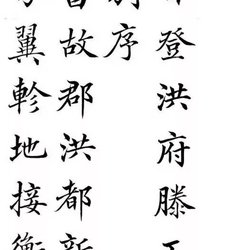 登洪府滕
序
故郡洪都新
翼軫地接衡